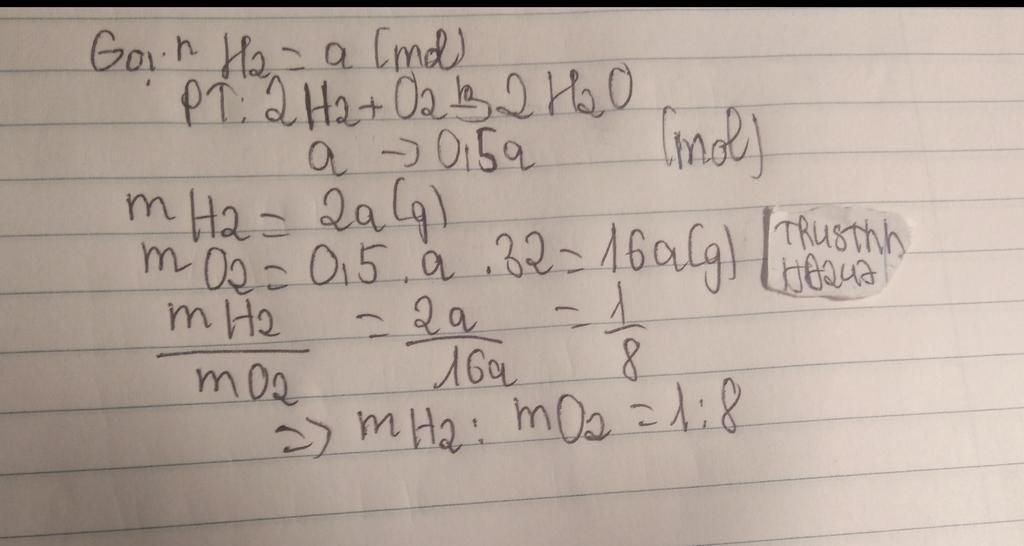 Gọi n H2 = a (mol)
PT: 2H2 + O2 → 2 H2O
a → 0,5a (mol)
m H2 = 2a (g)
m O2 = 0,5 . a . 32 = 16a (g)
TRUSTHh
HA2u7
mH2 / mO2 = 2a / 16a = 1 / 8
=> mH2 : mO2 = 1 : 8